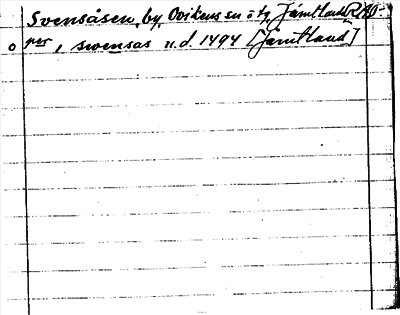 Svensåsen, by, Ovikens sn o tg, Jämtland RAÖ-
o per, swensas u.d. 1494 [Jämtland]